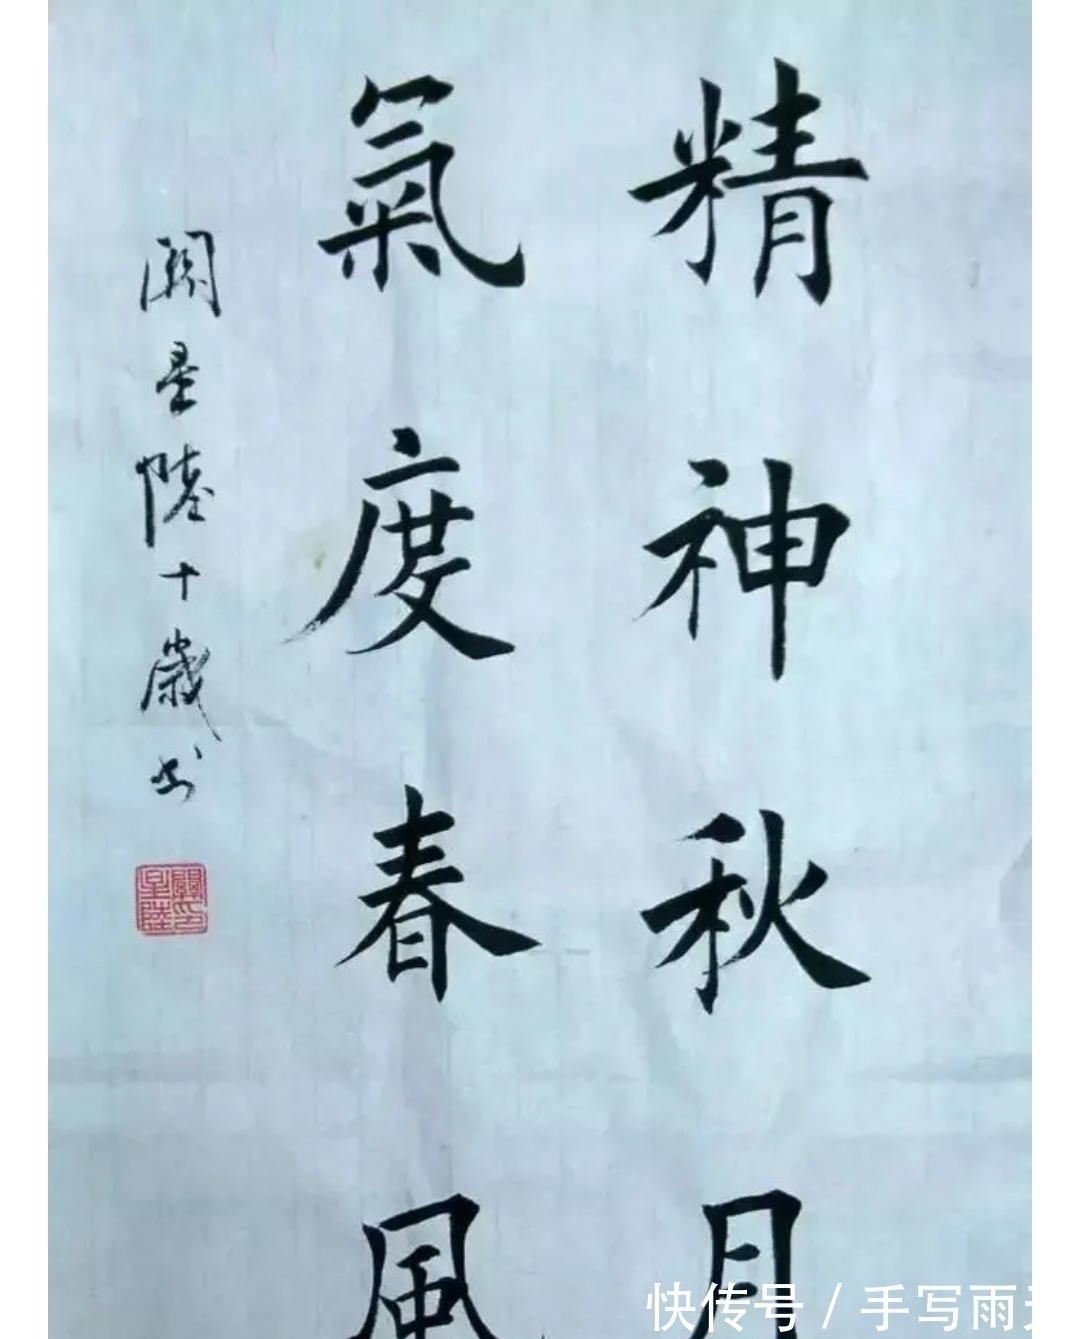 精神秋月
氣度春風
關星陸十歲书
快传号 / 手写雨